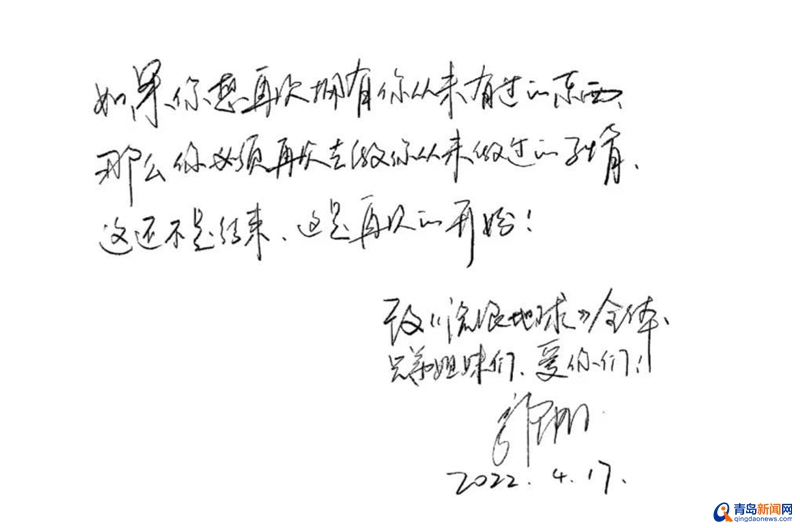 如果你想再次拥有你从来有过的东西、
那么你必须再次去做你从来做过的事情、
这还不是结束、这是再次的开始！
致《流浪地球》全体、
兄弟姐妹们、爱你们！
郭
2022.4.17.
青岛新闻网
qingdaonews.com